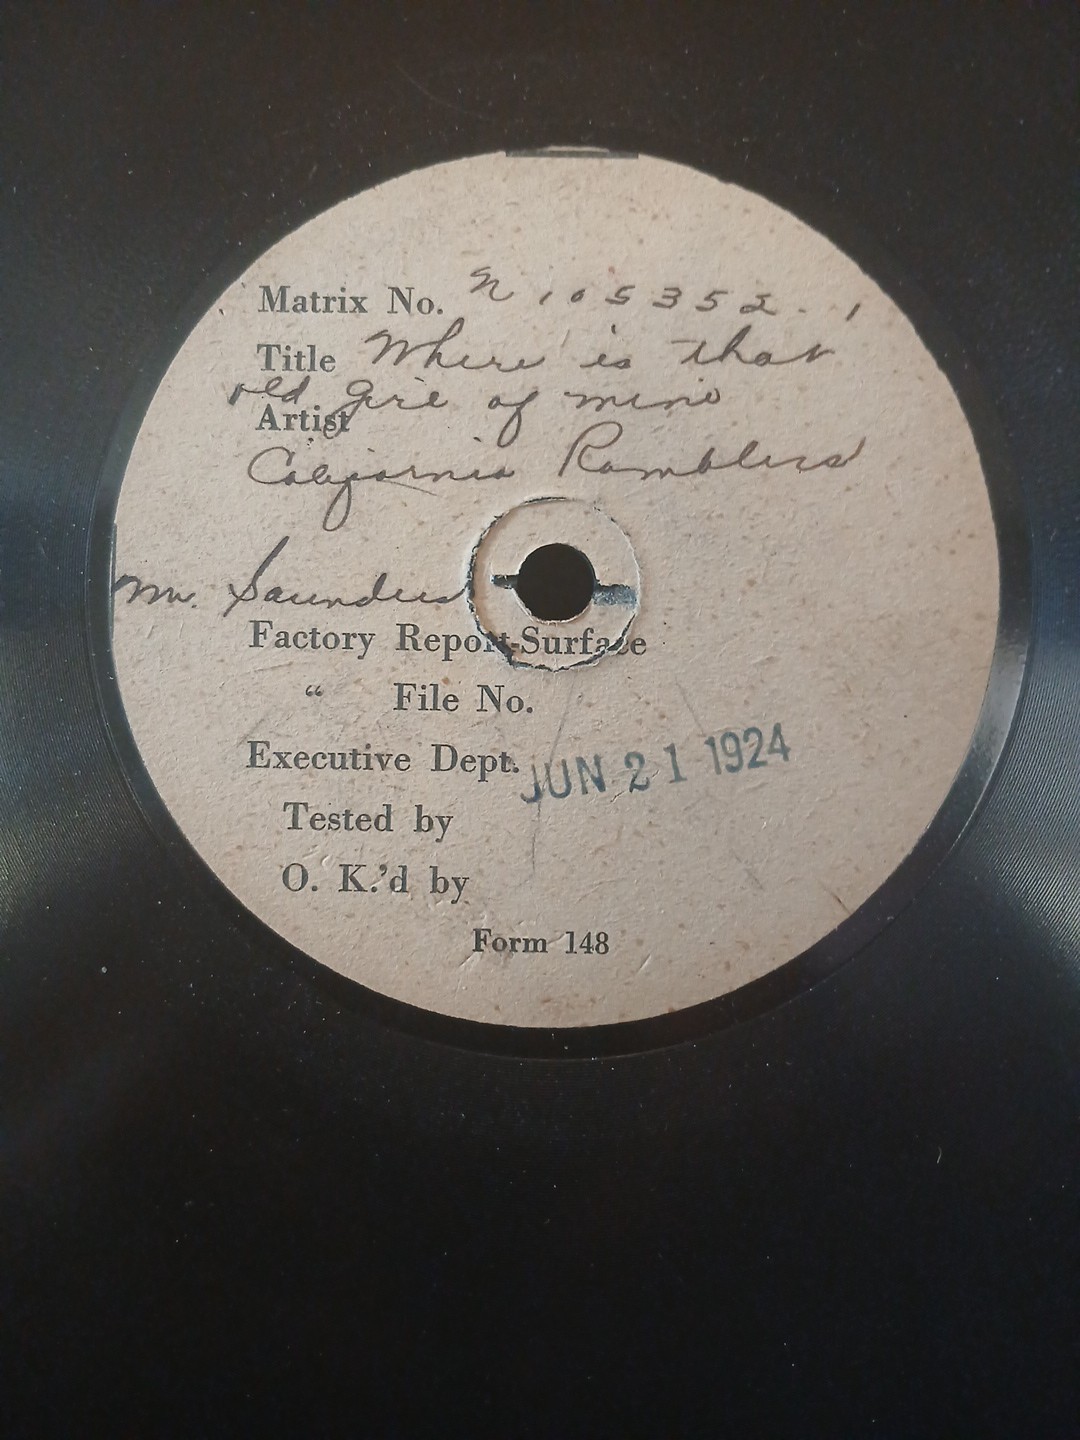 Matrix No. N 105352-1
Title Where is that
old girl of mine
Artist
California Ramblers
Mr. Saunders
Factory Report-Surface
“ File No.
Executive Dept. JUN 21 1924
Tested by
O. K.'d by
Form 148